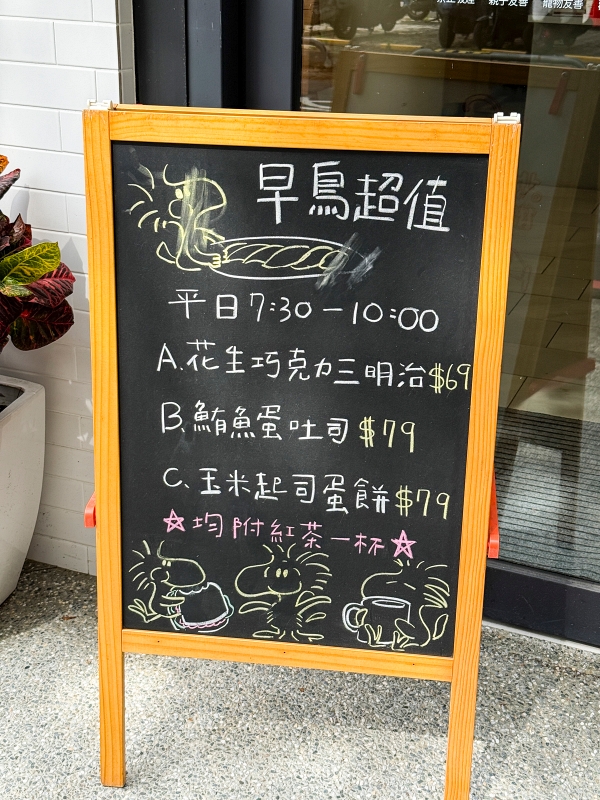 親子友善 寵物友善
早鳥超值
平日7:30－10:00
A.花生巧克力三明治$69
B.鮪魚蛋吐司$79
C.玉米起司蛋餅$79
☆均附紅茶一杯☆